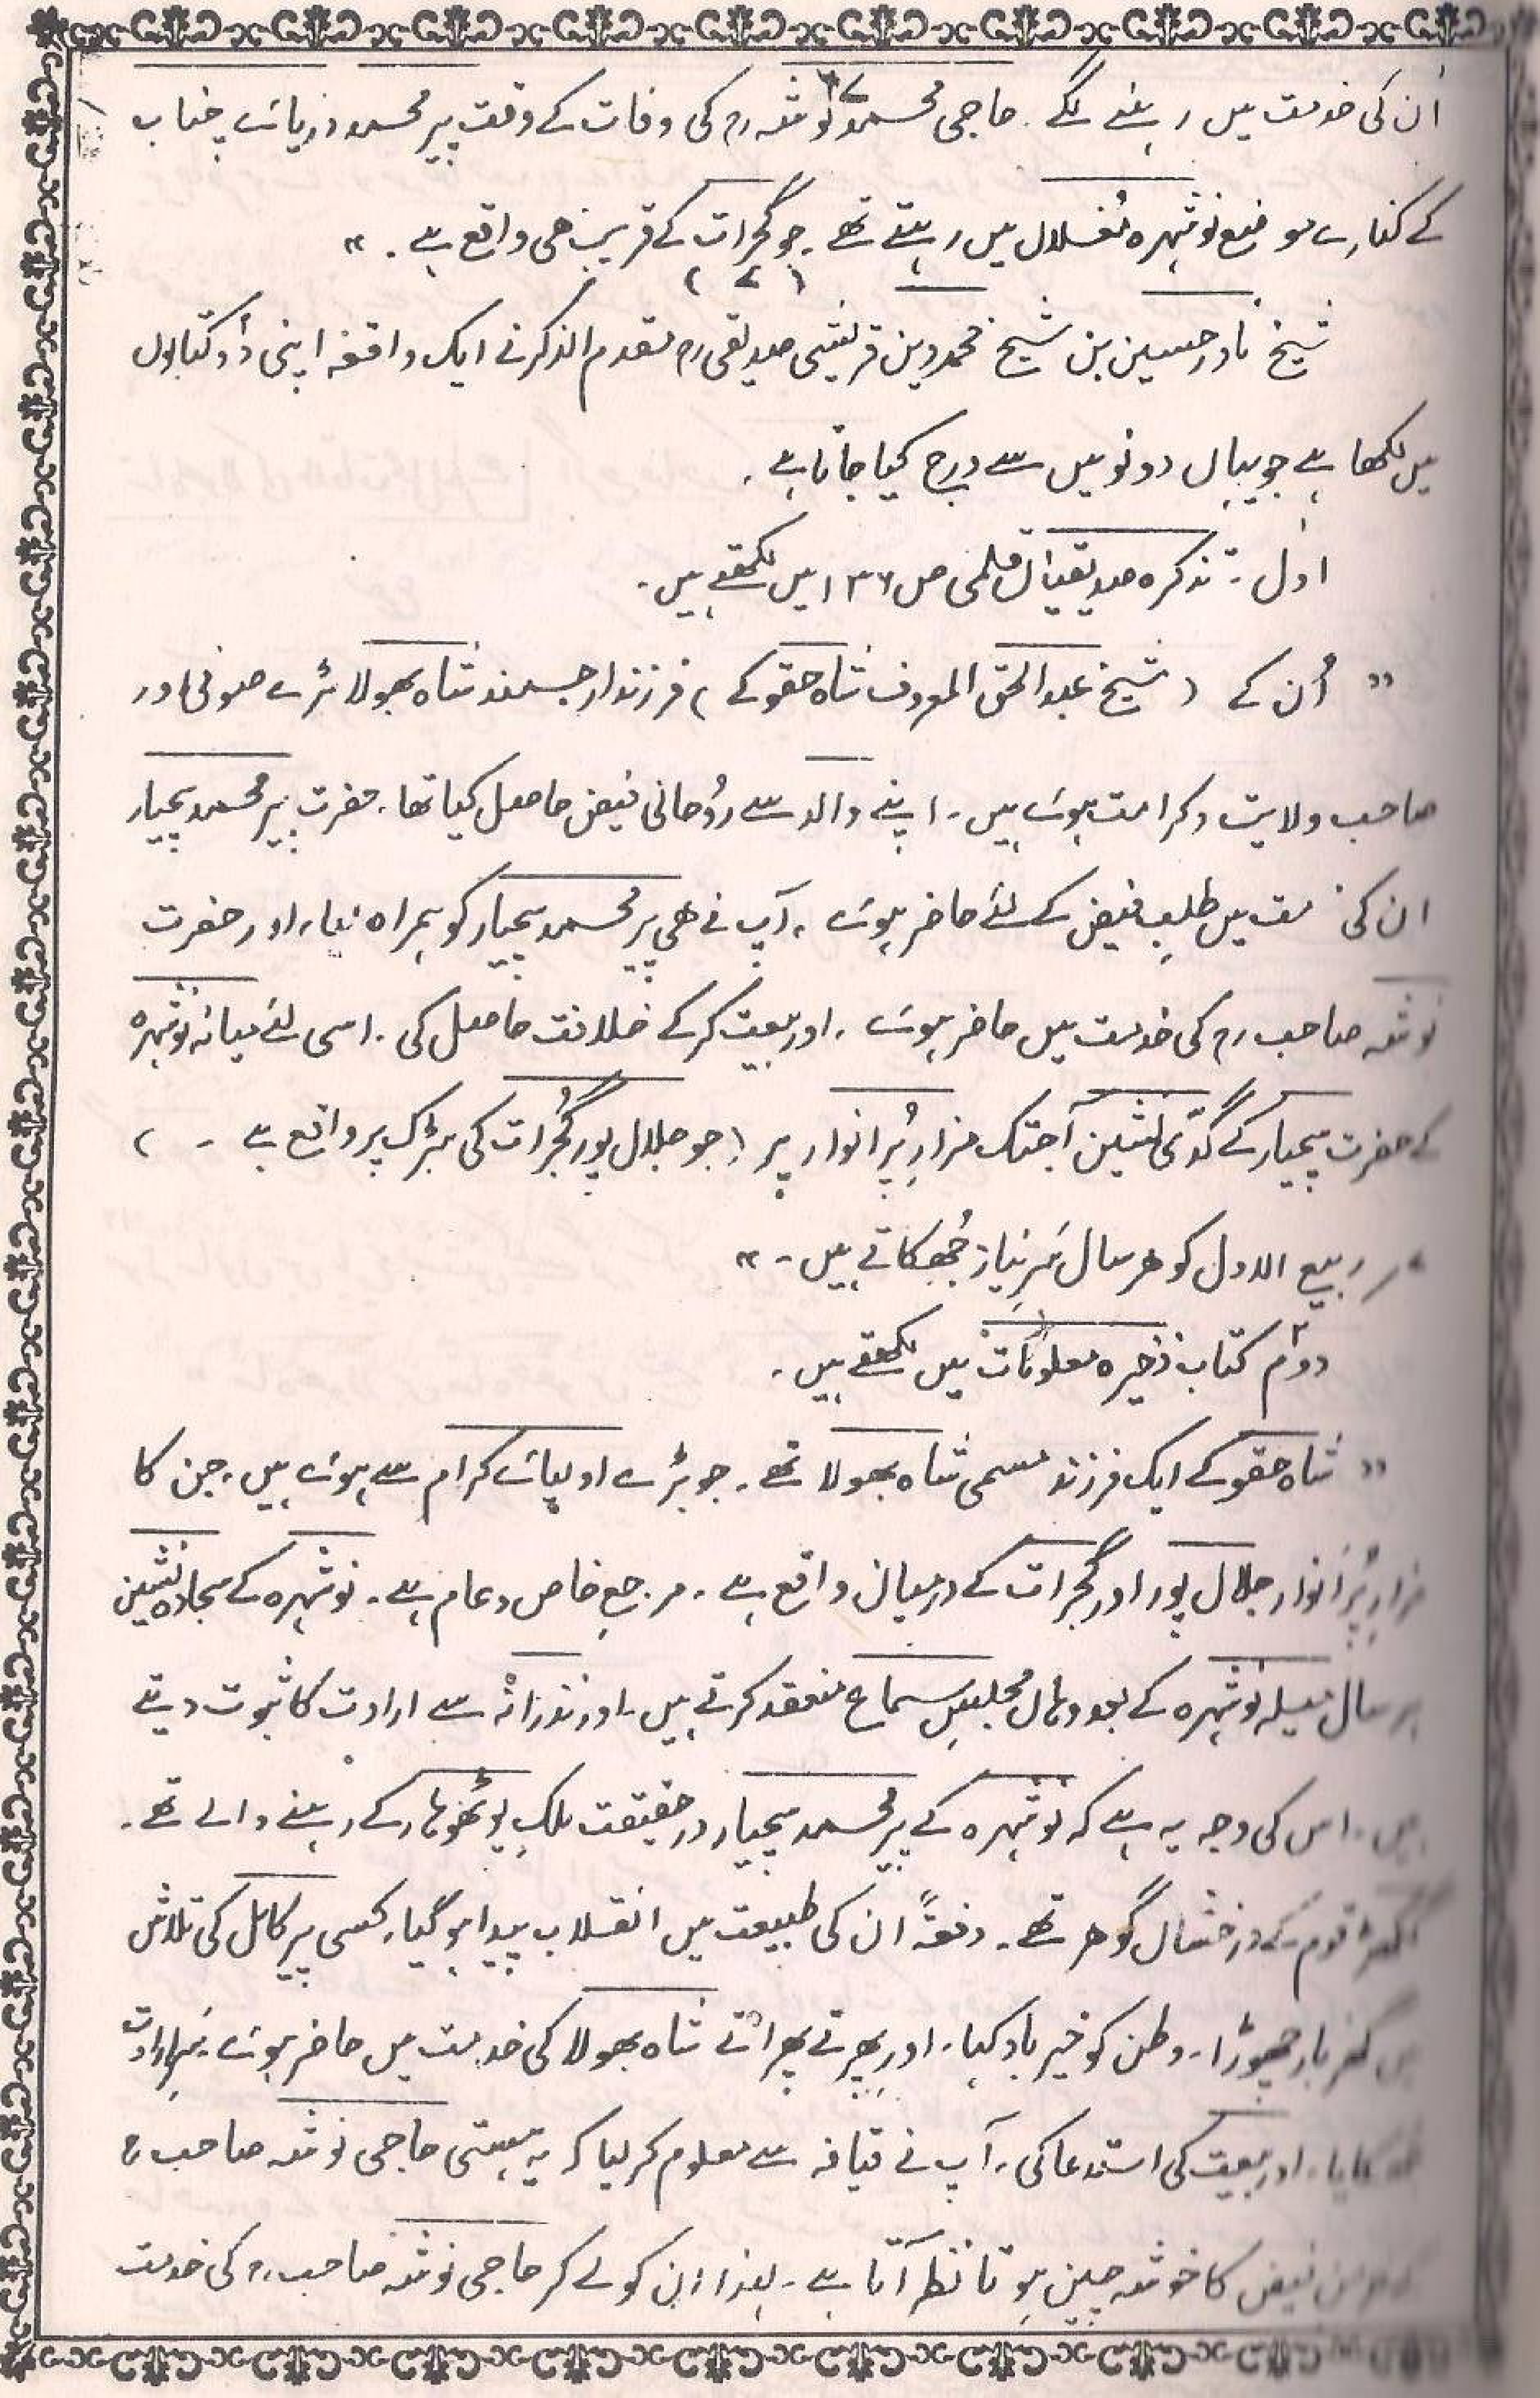 اُن کی خدمت میں رہنے لگے۔ حاجی محمد نوشہؒ کی وفات کے وقت پیر محمد دریائے چناب
کے کنارے موضع نوشہرہ مُغلاں میں رہتے تھے۔ جو گجرات کے قریب ھی واقع ہے۔ ״
(۷)
شیخ نادر حسین بن شیخ محمد دین قریشی صدیقیؒ مقدم الذکر نے ایک واقعہ اپنی دُو کتابوں
میں لکھا ہے جو یہاں دونو میں سے درج کیا جاتا ہے۔
اوّل۔ تذکرہ صدیقیاں قلمی ص ۱۳۶ میں لکھتے ہیں۔
״ اُن کے (شیخ عبدالحق المعروف شاہ حقو کے) فرزند ارجمند شاہ بھولا بڑے صوفی اور
صاحب ولایت و کرامت ہوئے ہیں۔ اپنے والد سے رُوحانی فیض حاصل کیا تھا۔ حضرت پیر محمد سچیار
ان کی خدمت میں طلبِ فیض کے لئے حاضر ہوئے۔ آپ نے ھی پیر محمد سچیار کو ہمراہ لیا، اور حضرت
نوشہ صاحبؒ کی خدمت میں حاضر ہوئے۔ اور بیعت کر کے خلافت حاصل کی۔ اسی لئے میانہ نوشہرہ
کے حضرت سچیار کے گدّی نشین آجتک مزارِ پُر انوار پر (جو جلالپور گجرات کی سڑک پر واقع ہے۔)
ربیع الاول کو ھر سال سَرِ نیاز جُھکاتے ہیں۔ ״
دوئم کتاب ذخیرہ معلومات میں لکھتے ہیں۔
״ شاہ حقو کے ایک فرزند مسمی شاہ بھولا تھے۔ جو بڑے اولیائے کرام سے ہوئے ہیں، جن کا
مزارِ پُر انوار جلال پور اور گجرات کے درمیان واقع ہے۔ مرجعِ خاص و عام ہے۔ نوشہرہ کے سجادہ نشین
ہر سال میلہ نوشہرہ کے بعد وہاں مجلسِ سماع منعقد کرتے ہیں۔ اور نذرانہ سے ارادت کا ثبوت دیتے
ہیں۔ اس کی وجہ یہ ہے کہ نوشہرہ کے پیر محمد سچیار درحقیقت ملکِ پوٹھوہار کے رہنے والے تھے۔
قوم کے درخشاں گوھر تھے۔ دفعۃً ان کی طبیعت میں انقلاب پیدا ہو گیا۔ کسی پیرِ کامل کی تلاش
میں گھر بار چھوڑا۔ وطن کو خیرباد کہا۔ اور پھرتے پھراتے شاہ بھولا کی خدمت میں حاضر ہوئے سَرِ ارادت
جھکایا۔ اور بیعت کی استدعا کی۔ آپ نے قیافہ سے معلوم کر لیا کہ یہ ہستی حاجی نوشہ صاحبؒ
فیض کا خوشہ چین ہوتا نظر آتا ہے۔ لہذا ان کو لے کر حاجی نوشہ صاحبؒ کی خدمت